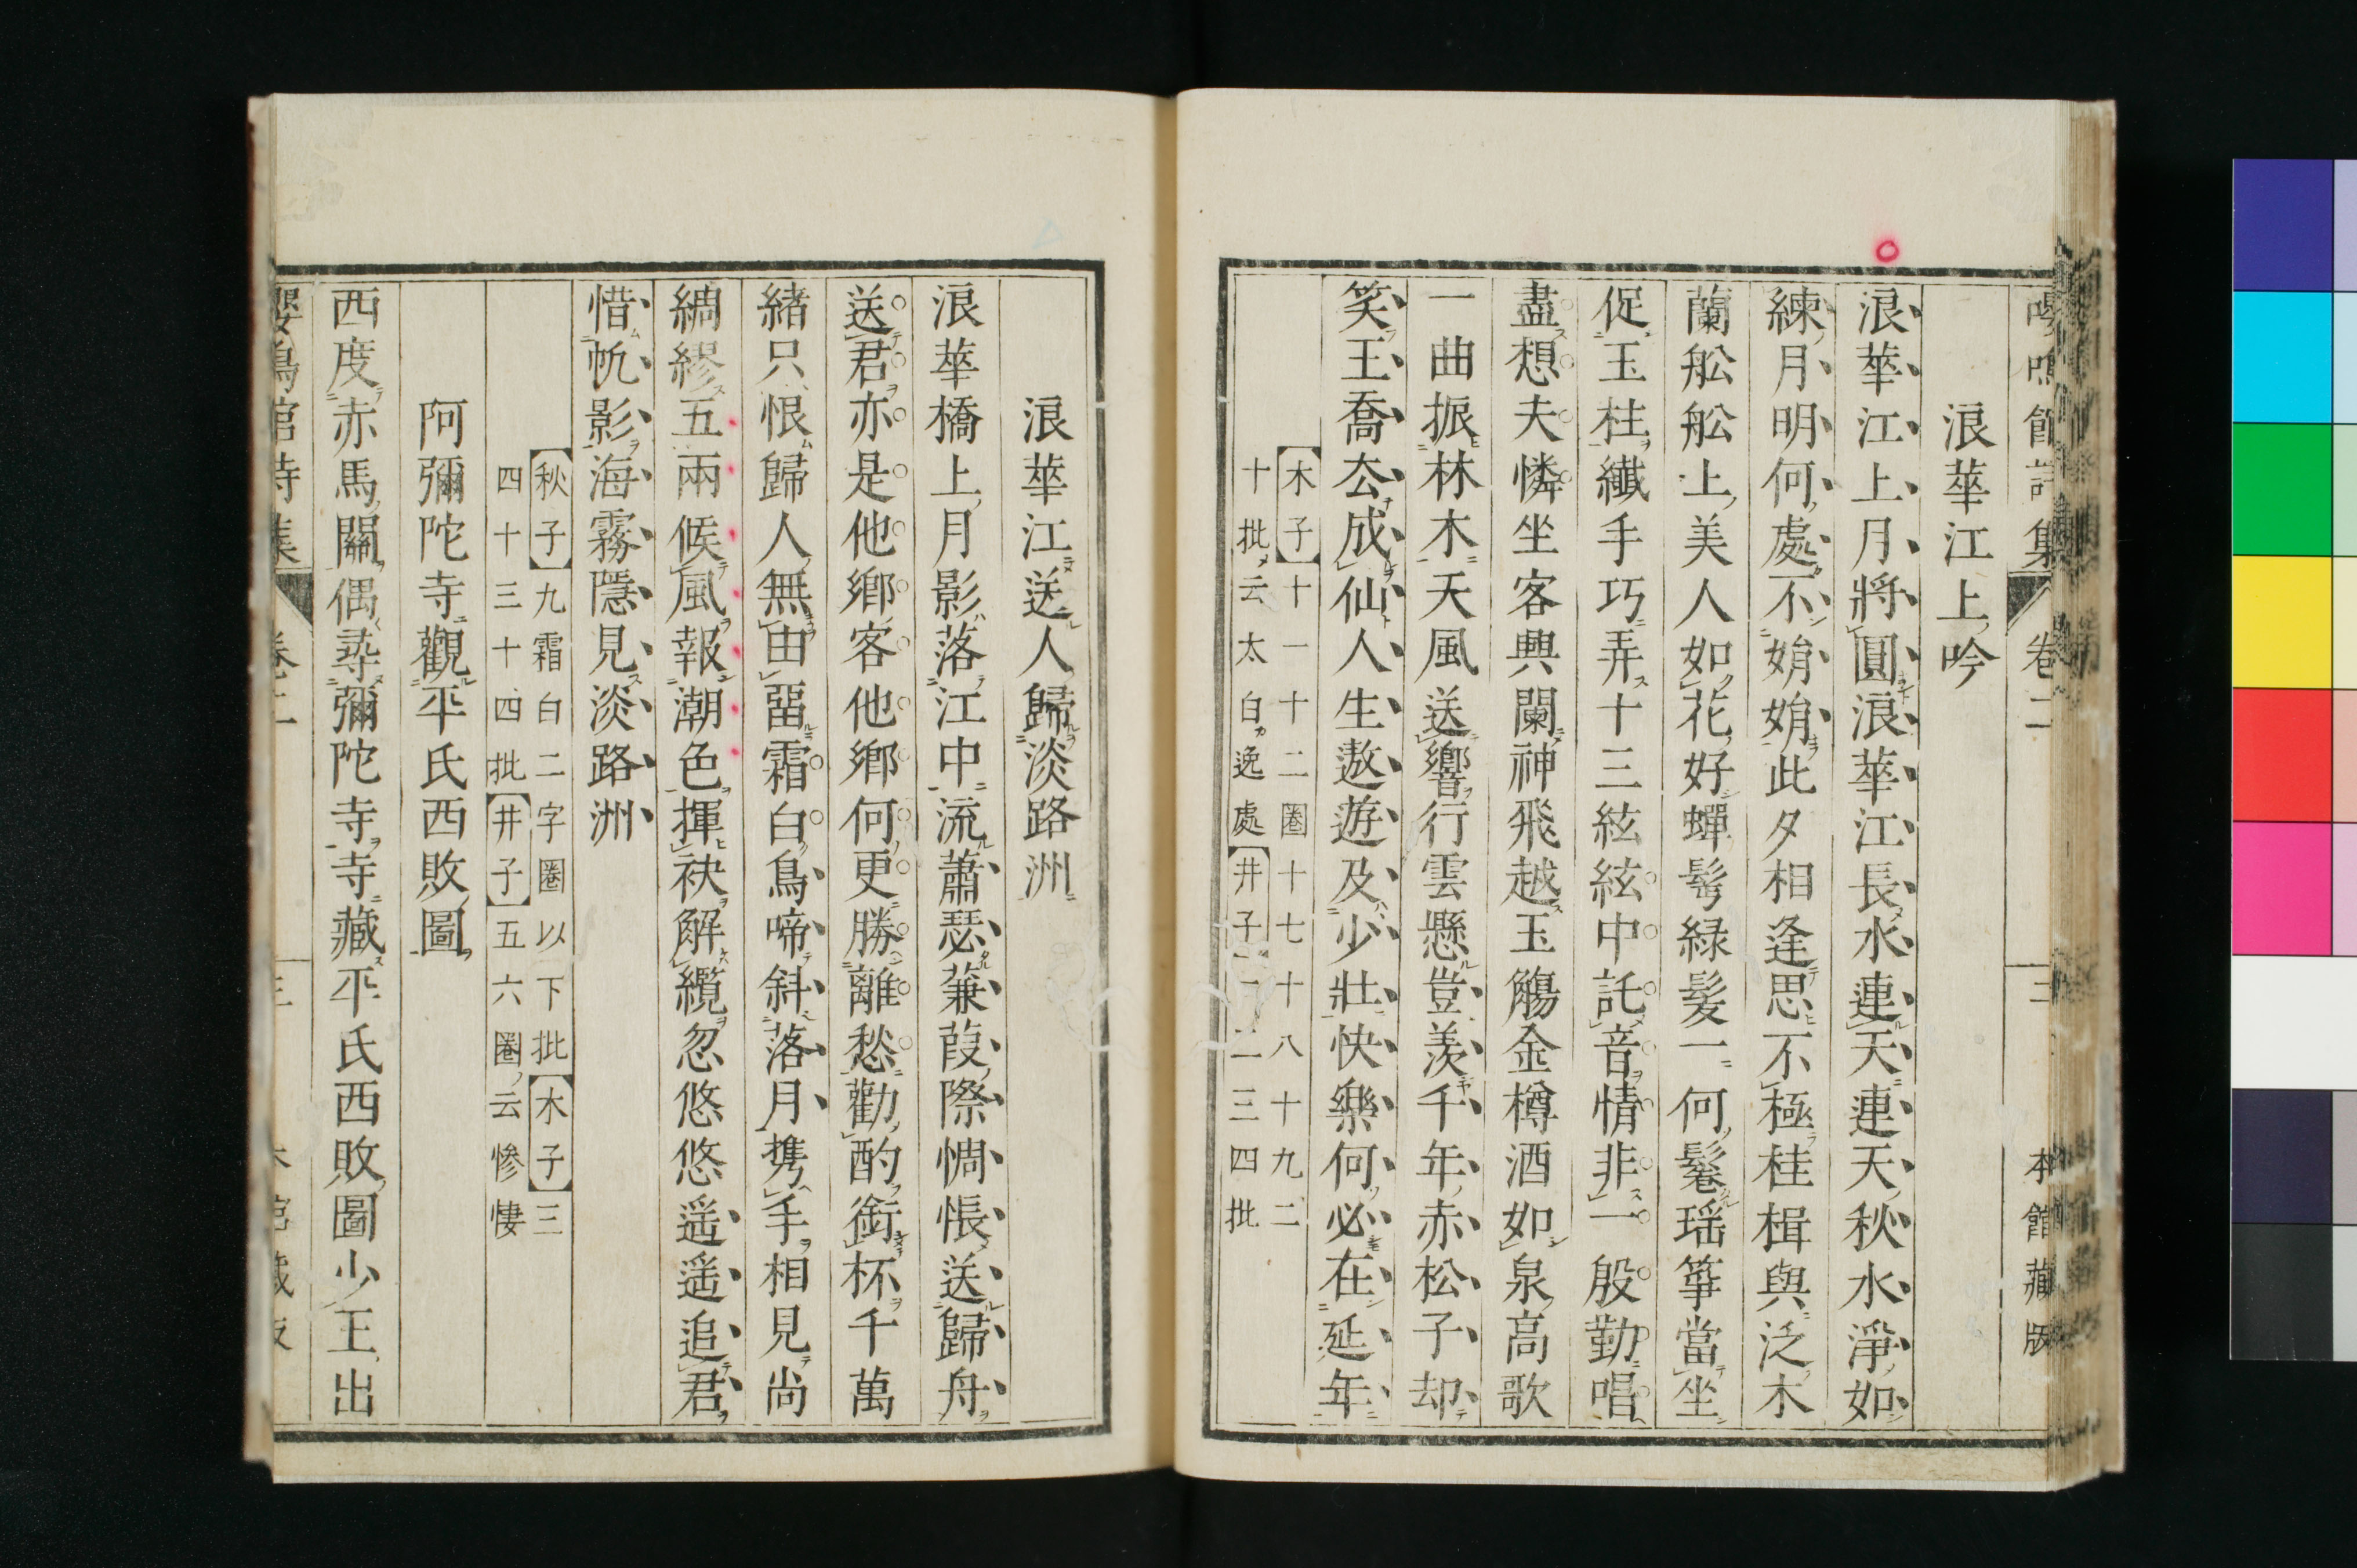 嚶鳴館詩集 卷二 三 本館藏版
浪華江上吟
浪華江上月將圓浪華江長水連天連天秋水淨如
練月明何處不娟娟此夕相逢思不極桂楫與泛木
蘭舩舩上美人如花好蟬髩綠髮一何鬈瑤箏當坐
促玉柱纖手巧弄十三絃絃中託音情非一殷勤唱
盡想夫憐坐客興闌神飛越玉觴金樽酒如泉高歌
一曲振林木天風送響行雲懸豈羨千年赤松子却
笑王喬厺成仙人生遨遊及少壯快樂何必在延年
【木子】十一十二圈十七十八十九二
十批云太白逸處【井子】一二三四批
浪華江送人歸淡路洲
浪華橋上月影落江中流蕭瑟蒹葭際惆悵送歸舟
送君亦是他鄉客他鄉何更勝離愁勸酌銜杯千萬
緒只恨歸人無由畱霜白鳥啼斜落月携手相見尚
綢繆五兩候風報潮色揮袂解纜忽悠悠遥遥追君
惜帆影海霧隱見淡路洲
【秋子】九霜白二字圈以下批【木子】三
四十三十四批【井子】五六圈云慘悽
阿彌陀寺觀平氏西敗圖
西度赤馬關偶尋彌陀寺寺藏平氏西敗圖少王出
嚶鳴館詩集 卷二 三 本館藏版